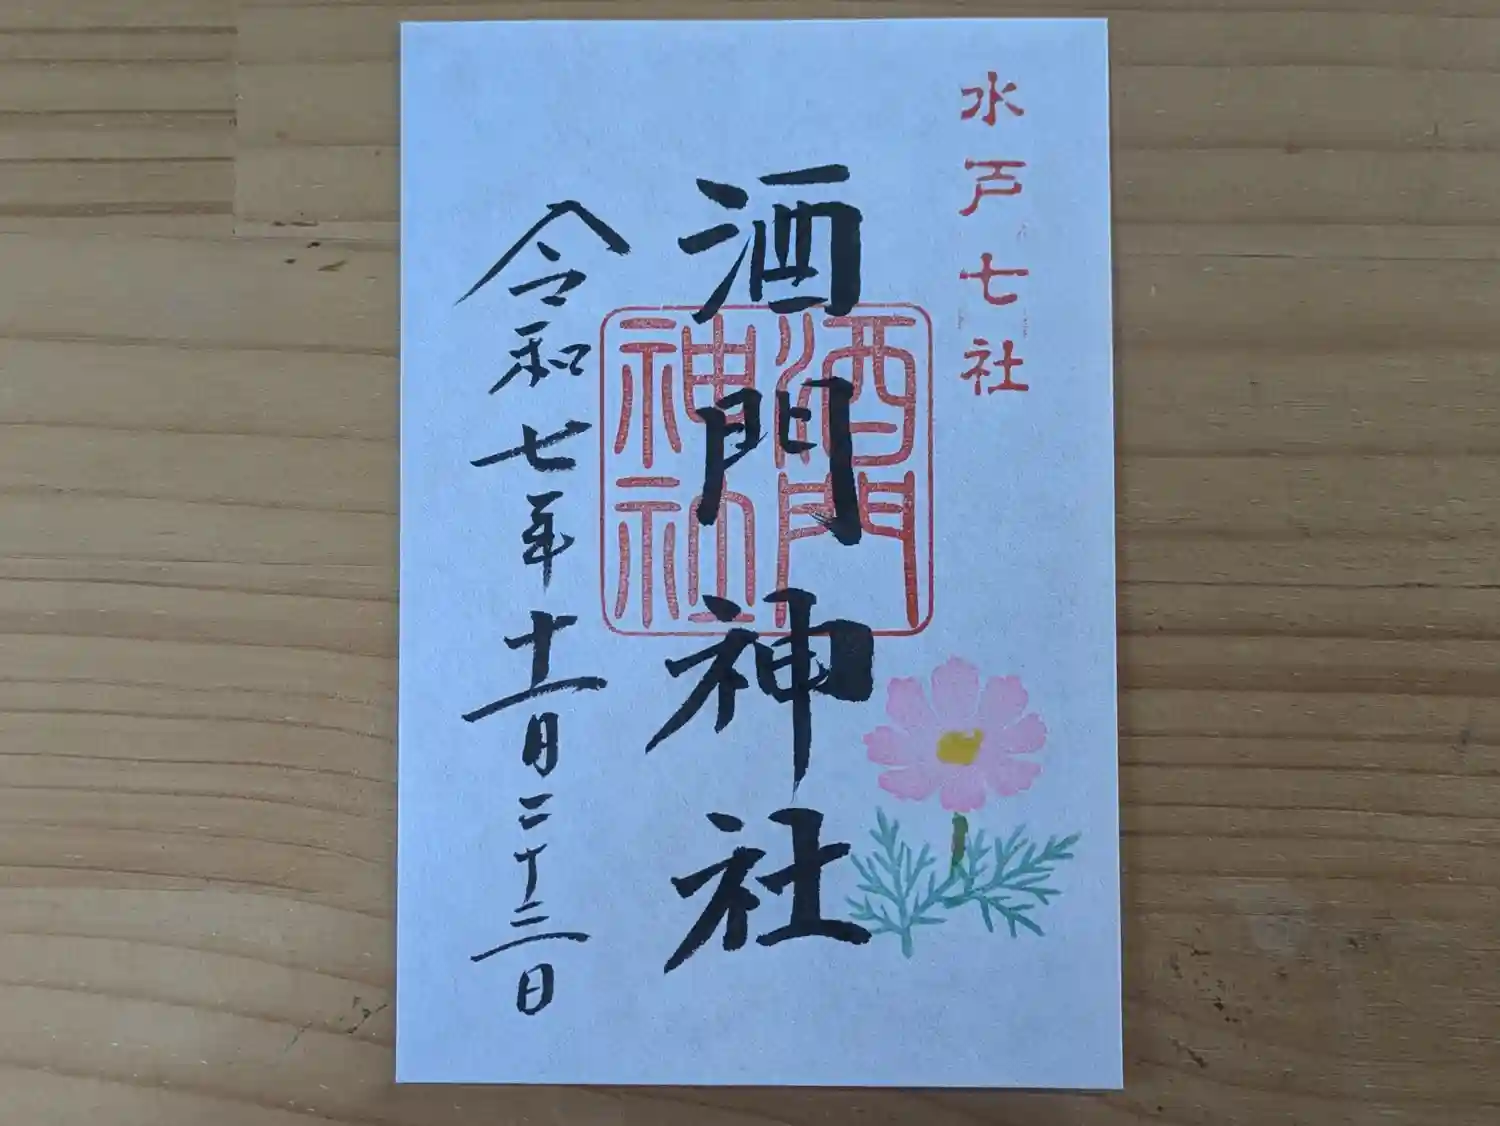 水戸七社
酒門神社
酒門神社
令和七年十一月二十三日